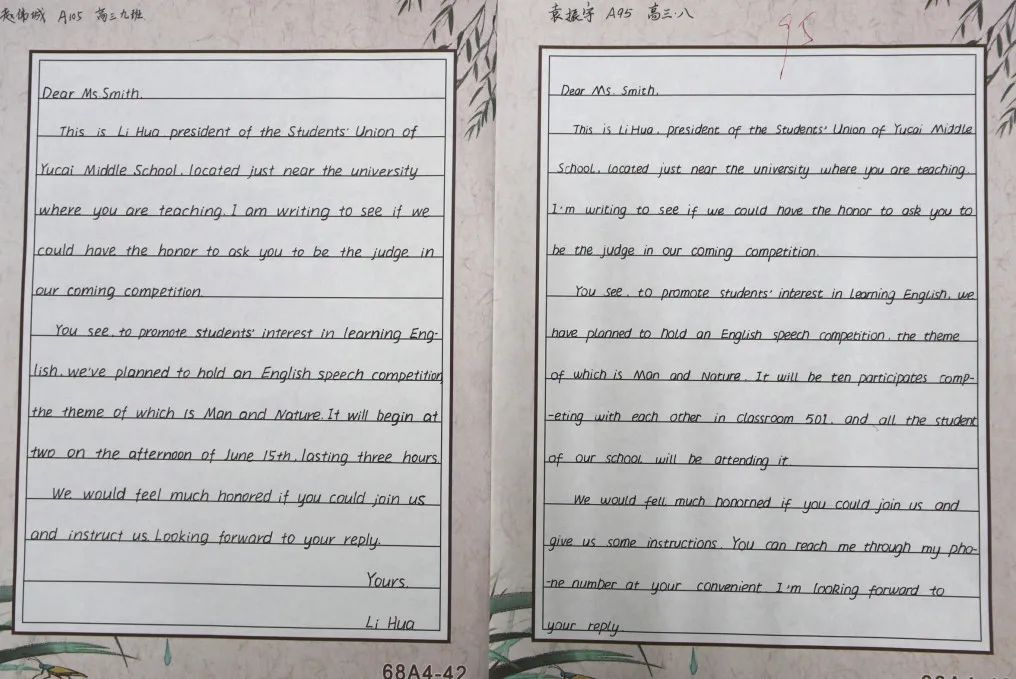 伟城 A105 高三九班
Dear Ms. Smith.
This is Li Hua president of the Students' Union of
Yucai Middle School, located just near the university
where you are teaching. I am writing to see if we
could have the honor to ask you to be the judge in
our coming competition.
You see, to promote students' interest in learning Eng-
lish, we've planned to hold an English speech competition
the theme of which is Man and Nature. It will begin at
two on the afternoon of June 15th, lasting three hours.
We would feel much honored if you could join us
and instruct us. Looking forward to your reply.
Yours,
Li Hua
68A4-42
袁振宇 A95 高三·八
95
Dear Ms. Smith,
This is Li Hua, president of the Students' Union of Yucai Middle
School, located just near the university where you are teaching.
I'm writing to see if we could have the honor to ask you to
be the judge in our coming competition.
You see, to promote students' interest in learning English, we
have planned to hold an English speech competition, the theme
of which is Man and Nature. It will be ten participates comp-
-eting with each other in classroom 501, and all the student
of our school will be attending it.
We would fell much honorned if you could join us and
give us some instructions. You can reach me through my pho-
-ne number at your convenient. I'm looking forward to
your reply.